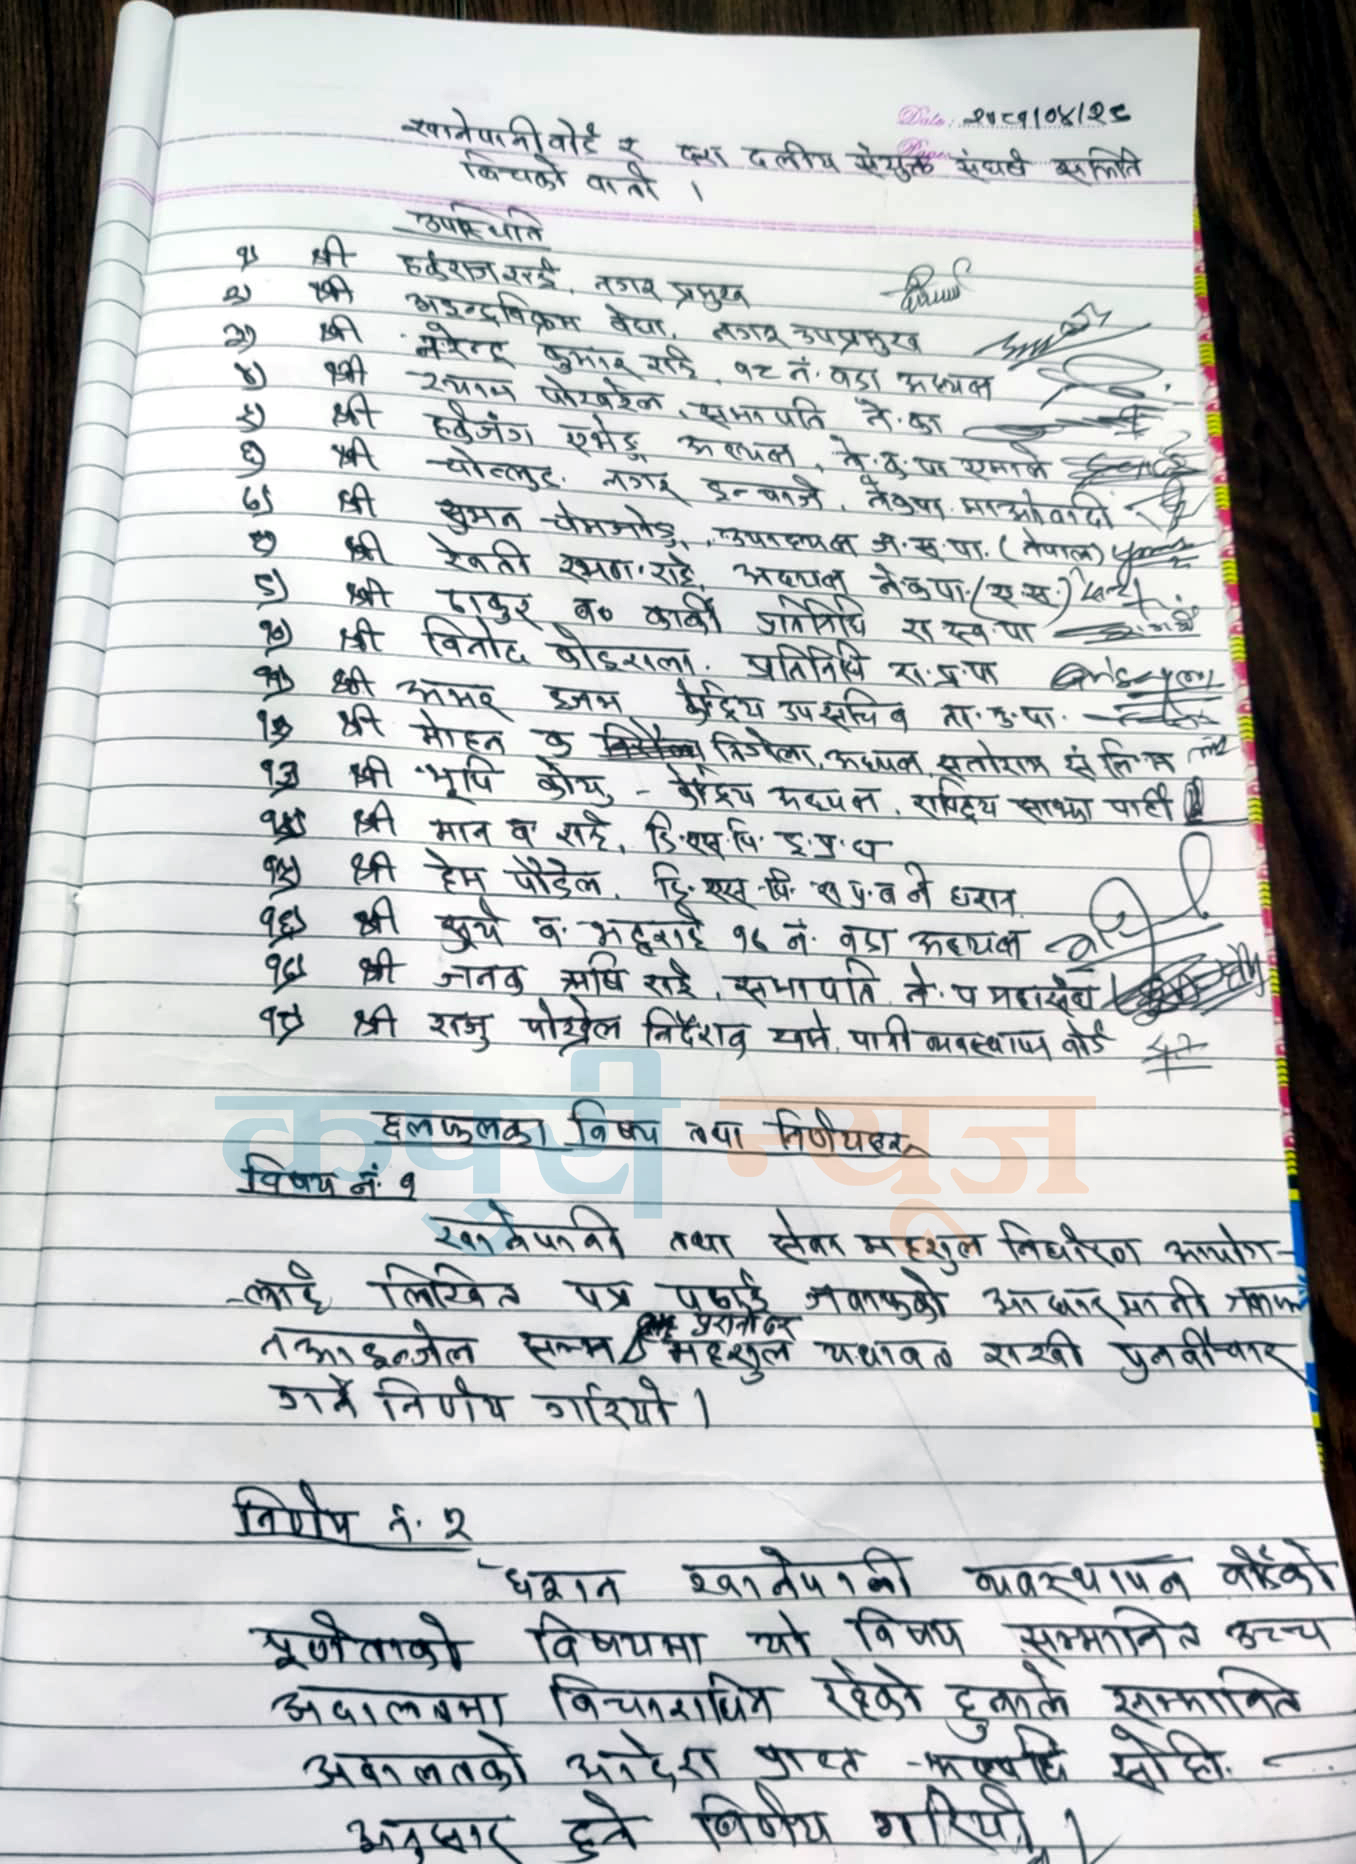 Date: २०८१/०४/२८
खानेपानी बोर्ड र दश दलीय संयुक्त संघर्ष समिति
बिचको वार्ता ।
उपस्थिति
१) श्री हर्कराज राई, नगर प्रमुख
२) श्री आइन्द्रविक्रम बेघा, नगर उपप्रमुख
३) श्री नरेन्द्र कुमार राई, १८ नं. वडा अध्यक्ष
४) श्री श्याम पोखरेल, सभापति ने.का
५) श्री हर्कजंग अध्यक्ष, ने.क.पा एमाले
६) श्री नगर इन्चार्ज, नेकपा माओवादी
७) श्री सुमन चेमजोङ, उपाध्यक्ष ज.स.पा. (नेपाल)
८) श्री रेवती रमण राई, अध्यक्ष नेकपा (ए.स.)
९) श्री ठाकुर ब० कार्की प्रतिनिधि रा स्व पा
१०) श्री विनोद कोइराला, प्रतिनिधि रा.प्र.पा
११) श्री अमर केन्द्रिय उपसचिव
१२) श्री मोहन क निरौला, अध्यक्ष,
१३) श्री भूपि - केन्द्रिय अध्यक्ष, राष्ट्रिय साझा पार्टी
१४) श्री मान ब राई, डि.एस.पि. इ.प्र.ध
१५) श्री हेम पौडेल, डि.एस.पि. स प्र.ब ने धरान
१६) श्री सुर्य ब. भट्टराई १६ नं. वडा अध्यक्ष
१७) श्री जनक ऋषि राई, सभापति ने.प महासंघ
१८) श्री राजु पोख्रेल निर्देशक खाने पानी व्यवस्थापन बोर्ड
छलफलका विषय तथा निर्णयहरु
कपुरी न्यूज
विषय नं. १
खानेपानी तथा सेवा महशुल निर्धारण आयोग-
-लाई लिखित पत्र पठाई जवाफको आधारमानी जवाफ
पुरानो दर
नआइन्जेल सम्म महशुल यथावत राखी पुनर्वीचार
गर्ने निर्णय गरियो ।
निर्णय नं. २
धरान खानेपानी व्यवस्थापन बोर्डको
पूर्णताको विषयमा यो विषय सम्मानित उच्च
अदालतमा विचाराधिन रहेको हुनाले सम्मानित
अदालतको आदेश प्राप्त भएपछि सोहि
अनुसार हुने निर्णय गरियो ।